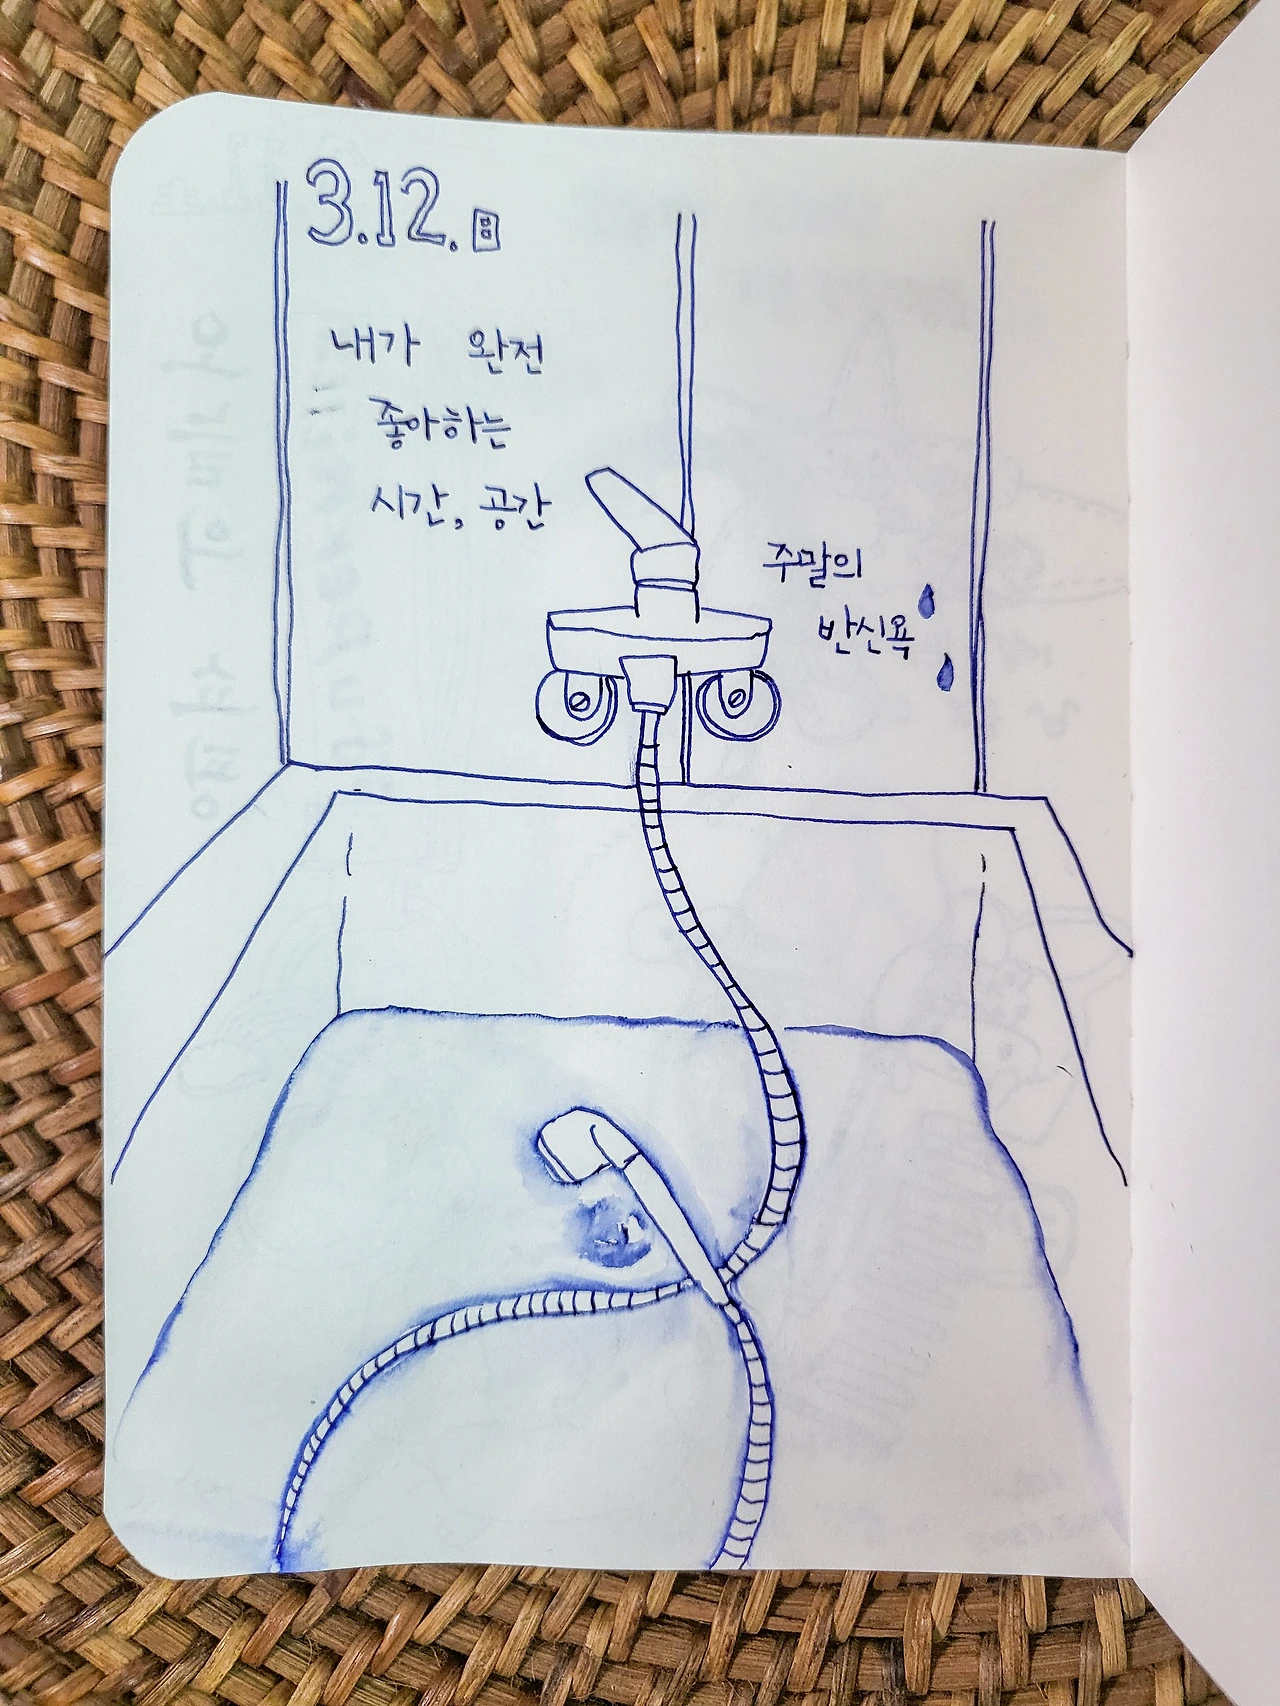 3.12.日
내가 완전
좋아하는
시간, 공간
주말의
반신욕